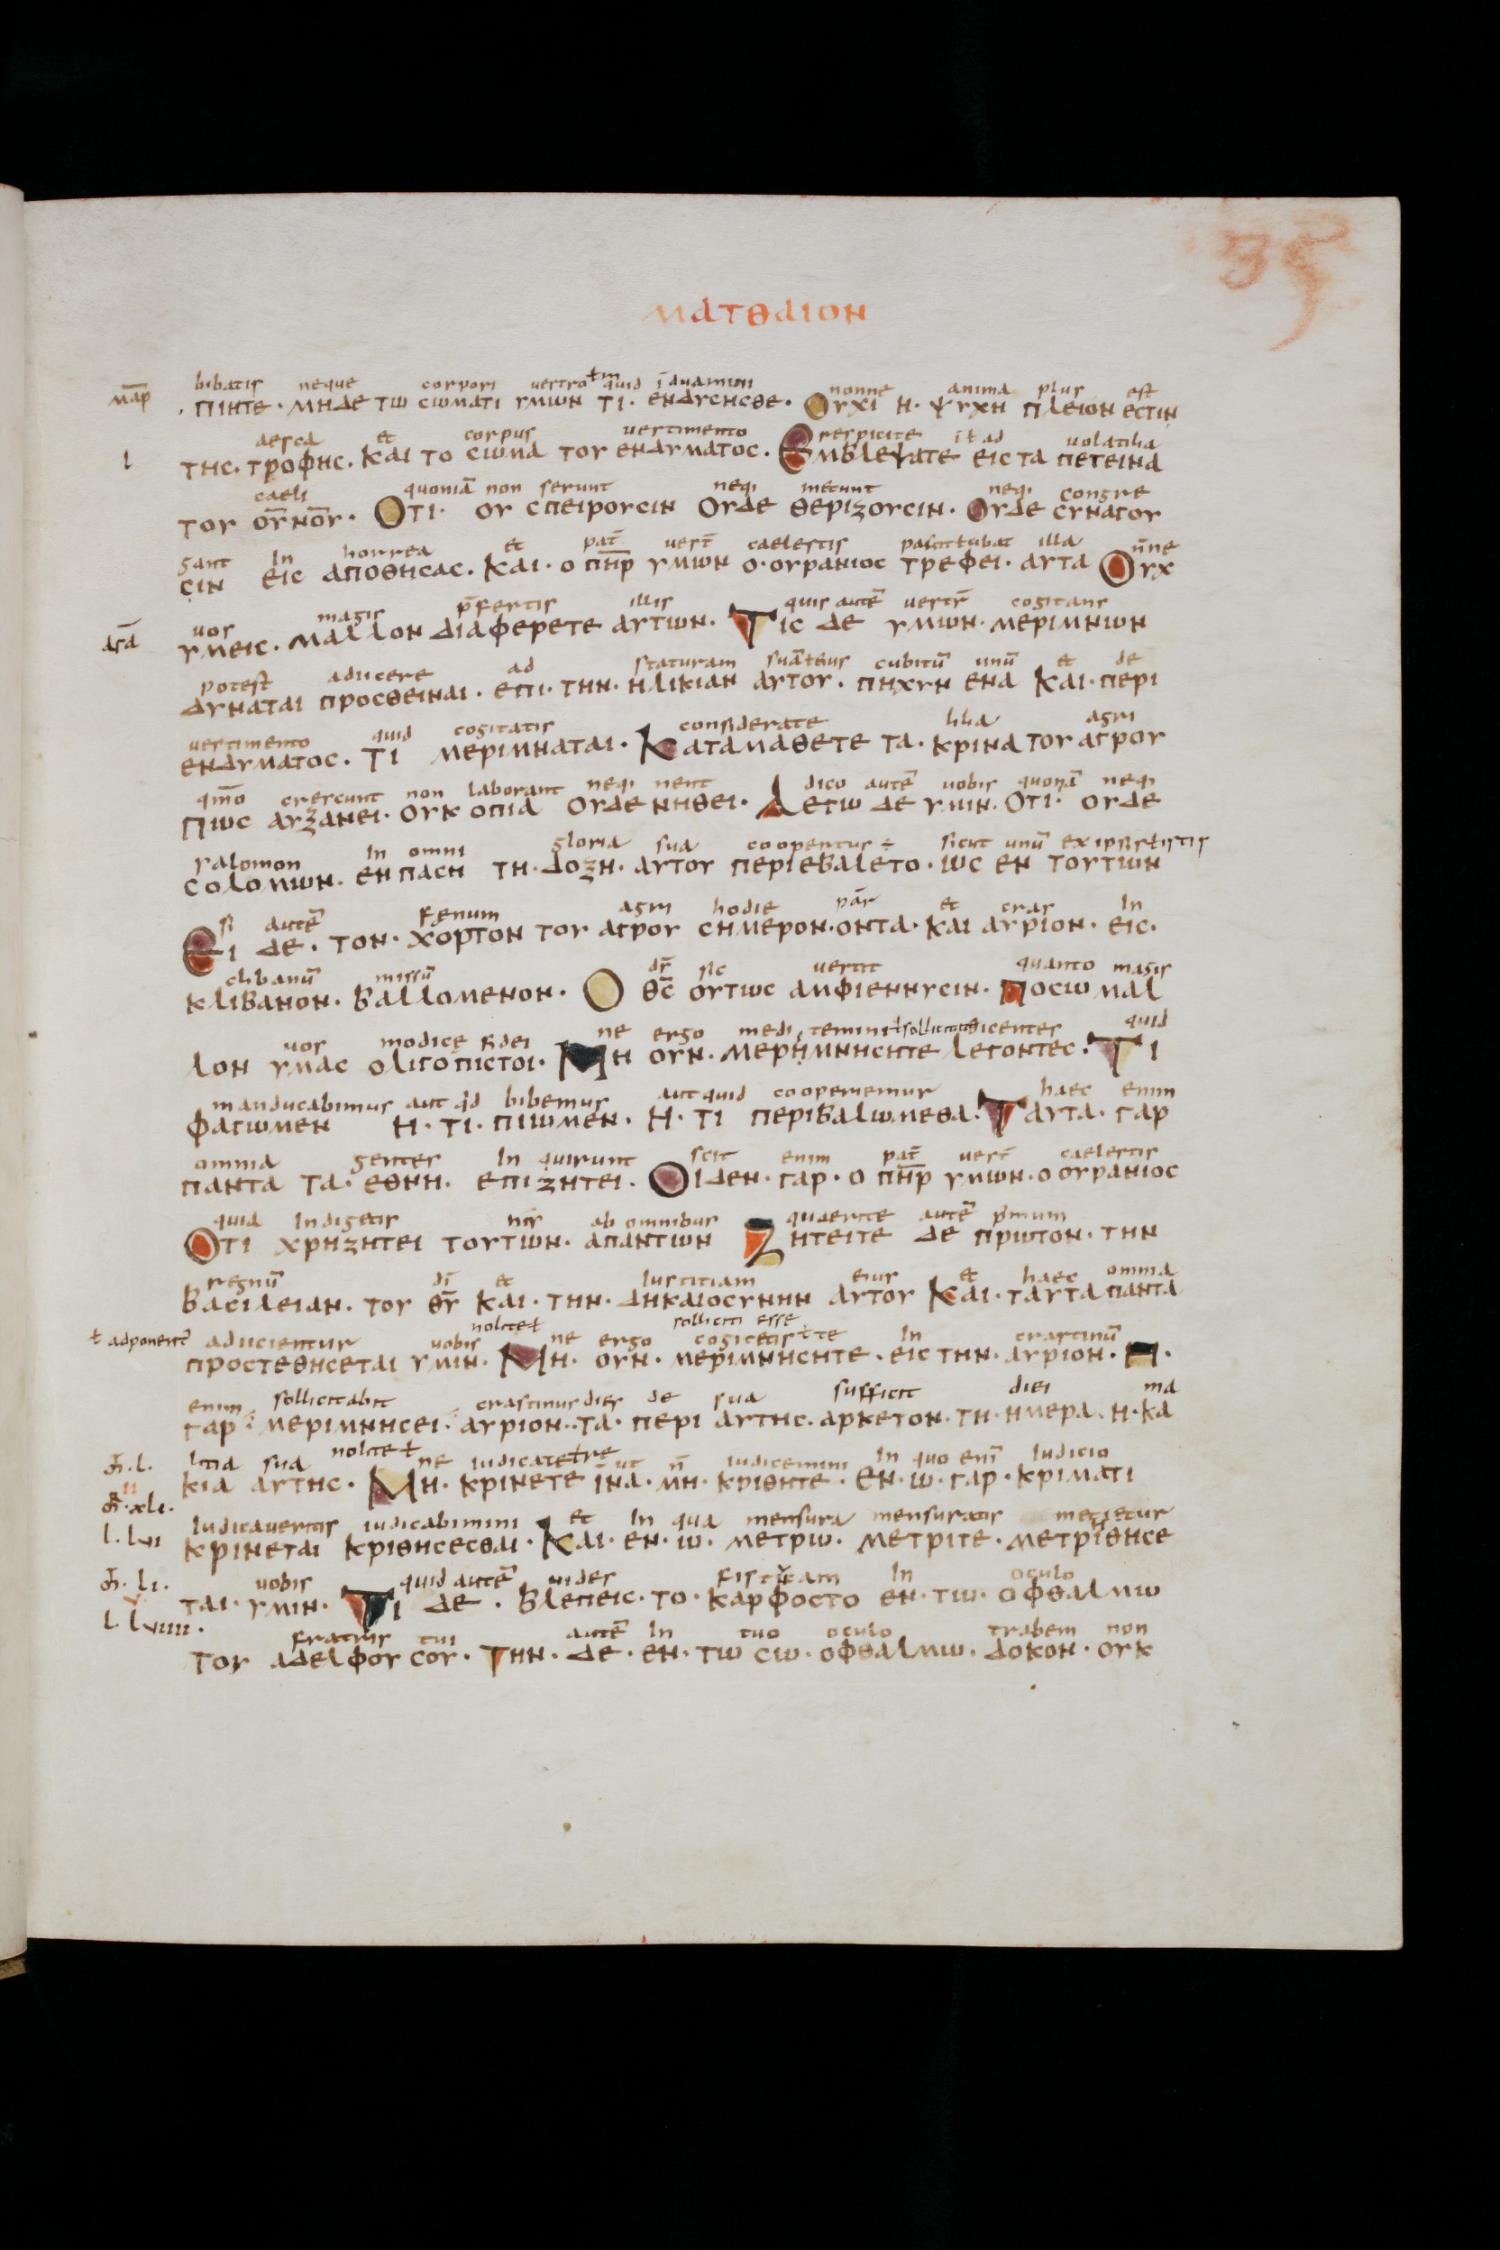 35
ΜΑΤΘΑΙΟΝ
bibatis neque corpori vestro ł m quid īduamini nonne anima plus est
ΠΙΗΤΕ · ΜΗΔΕ ΤΩ CΩΜΑΤΙ ΥΜΙΩΝ ΤΙ · ΕΝΔΥCΗCΘΕ · ΟΥΧΙ Η · ΨΥΧΗ ΠΛΕΙΟΝ ΕCΤΙΝ
aesca et corpus vestimento respicite ł ad uolatilia
l
ΤΗC · ΤΡΟΦΗC · ΚΑΙ ΤΟ CΩΜΑ ΤΟΥ ΕΝΔΥΜΑΤΟC · ΕΜΒΛΕΨΑΤΕ ΕΙC ΤΑ ΠΕΤΕΙΝΑ
caeli quoniā non serunt neqi metunt neqi congre
ΤΟΥ ΟΥ̅ΝΟ̅Υ · ΟΤΙ · ΟΥ CΠΕΙΡΟΥCΙΝ ΟΥΔΕ ΘΕΡΙΖΟΥCΙΝ · ΟΥΔΕ CΥΝΑΓΟΥ
gant in horrea et pat̄ vest̄ caelestis illa n̄ne
CΙΝ ΕΙC ΑΠΟΘΗCΑC · ΚΑΙ · Ο ΠΗ̅Ρ ΥΜΩΝ Ο · ΟΥΡΑΝΙΟC ΤΡΕΦΕΙ · ΑΥΤΑ ΟΥΧ
uos magis p̄fertis illis quis autē vestr̄ cogitans
ΥΜΕΙC · ΜΑΛΛΟΝ ΔΙΑΦΕΡΕΤΕ ΑΥΤΩΝ · ΤΙC ΔΕ ΥΜΩΝ · ΜΕΡΙΜΝΙΩΝ
potest adiicere ad staturam suā ł eius cubitū unū et de
ΔΥΝΑΤΑΙ ΠΡΟCΘΕΙΝΑΙ · ΕΠΙ · ΤΗΝ · ΗΛΙΚΙΑΝ ΑΥΤΟΥ · ΠΗΧΥΝ ΕΝΑ ΚΑΙ · ΠΕΡΙ
vestimento quid cogitatis considerate lilia agri
ΕΝΔΥΜΑΤΟC · ΤΙ ΜΕΡΙΜΝΑΤΑΙ · ΚΑΤΑΜΑΘΕΤΕ ΤΑ · ΚΡΙΝΑ ΤΟΥ ΑΓΡΟΥ
qm̄o crescunt non laborant neqi nent dico autē uobis quonā neqi
ΠΩC ΑΥΞΑΝΕΙ · ΟΥΚ ΟΠΙΑ ΟΥΔΕ ΝΗΘΕΙ · ΛΕΓΩ ΔΕ ΥΜΙΝ · ΟΤΙ · ΟΥΔΕ
salomon in omni gloria sua coopertus ÷ sicut unū ex ipsis ł istis
CΟΛΟΜΩΝ · ΕΝ ΠΑCΗ ΤΗ · ΔΟΞΗ · ΑΥΤΟΥ ΠΕΡΙΕΒΑΛΕΤΟ · ΩC ΕΝ ΤΟΥΤΩΝ
si autē fenum agri hodie et cras in
ΕΙ ΔΕ · ΤΟΝ · ΧΟΡΤΟΝ ΤΟΥ ΑΓΡΟΥ CΗΜΕΡΟΝ · ΟΝΤΑ · ΚΑΙ ΑΥΡΙΟΝ · ΕΙC ·
clibanū missū ds̄ sic vestit quanto magis
ΚΛΙΒΑΝΟΝ · ΒΑΛΛΟΜΕΝΟΝ · Ο ΘC̅ ΟΥΤΩC ΑΜΦΙΕΝΝΥCΙΝ · ΠΟCΩ ΜΑΛ
uos modicę fidei ne ergo dicentes quid
ΛΟΝ ΥΜΑC ΟΛΙΓΟΠΙCΤΟΙ · ΜΗ ΟΥΝ · ΜΕΡΗΜΝΗCΗΤΕ ΛΕΓΟΝΤΕC · ΤΙ
manducabimus aut qd bibemus aut quid cooperiemur haec enim
ΦΑΓΩΜΕΝ Η · ΤΙ · ΠΙΩΜΕΝ · Η · ΤΙ ΠΕΡΙΒΑΛΩΜΕΘΑ · ΤΑΥΤΑ · ΓΑΡ
omnia gentes in quirunt scit enim pat̄ vest̄ caelestis
ΠΑΝΤΑ ΤΑ · ΕΘΝΗ · ΕΠΙΖΗΤΕΙ · ΟΙΔΕΝ · ΓΑΡ · Ο ΠΗ̅Ρ ΥΜΩΝ · Ο ΟΥΡΑΝΙΟC
quid indigetis ab omnibus quaerite autē pimum
ΟΤΙ ΧΡΗΖΗΤΕΙ ΤΟΥΤΩΝ · ΑΠΑΝΤΩΝ ΖΗΤΕΙΤΕ ΔΕ ΠΡΩΤΟΝ · ΤΗΝ
regnū dī et iustitiam eius et haec omnia
ΒΑCΙΛΕΙΑΝ · ΤΟΥ ΘΥ̅ ΚΑΙ · ΤΗΝ · ΔΗΚΑΙΟCΥΝΗΝ ΑΥΤΟΥ ΚΑΙ · ΤΑΥΤΑ ΠΑΝΤΑ
nolite ł solliciti esse
ł adponent̄ adiicientur uobis ne ergo cogitetis ł te in crastinū
ΠΡΟCΤΕΘΗCΕΤΑΙ ΥΜΙΝ · ΜΗ · ΟΥΝ · ΜΕΡΙΜΝΗCΗΤΕ · ΕΙC ΤΗΝ · ΑΥΡΙΟΝ · Η ·
enim sollicitabit crastinus dies de sua sufficit diei ma
ΓΑΡ · ΜΕΡΙΜΝΗCΕΙ · ΑΥΡΙΟΝ · ΤΑ · ΠΕΡΙ ΑΥΤΗC · ΑΡΚΕΤΟΝ · ΤΗ · ΗΜΕΡΑ · Η · ΚΑ
litia sua nolite ł ne iudicate ł re ut n̄ iudicemini in quo enī iudicio
ΚΙΑ ΑΥΤΗC · ΜΗ · ΚΡΙΝΕΤΕ ΙΝΑ · ΜΗ · ΚΡΙΘΗΤΕ · ΕΝ · Ω · ΓΑΡ · ΚΡΙΜΑΤΙ
xli ·
l · lvi
iudicaveritis iudicabimini et in qua mensura mensuratis metietur
ΚΡΙΝΕΤΑΙ ΚΡΙΘΗCΕCΘΑΙ · ΚΑΙ · ΕΝ · Ω · ΜΕΤΡΩ · ΜΕΤΡΙΤΕ · ΜΕΤΡΙΘΗCΕ
li ·
uobis quid autē uides fistucam in oculo
ΤΑΙ · ΥΜΙΝ · ΤΙ ΔΕ · ΒΛΕΠΕΙC · ΤΟ · ΚΑΡΦΟCΤΟ ΕΝ · ΤΩ · ΟΦΘΑΛΜΩ
l · lviiii ·
fratris tui autē in tuo oculo trabem non
ΤΟΥ ΑΔΕΛΦΟΥ CΟΥ · ΤΗΝ · ΔΕ · ΕΝ · ΤΩ CΩ · ΟΦΘΑΛΜΩ · ΔΟΚΟΝ · ΟΥΚ